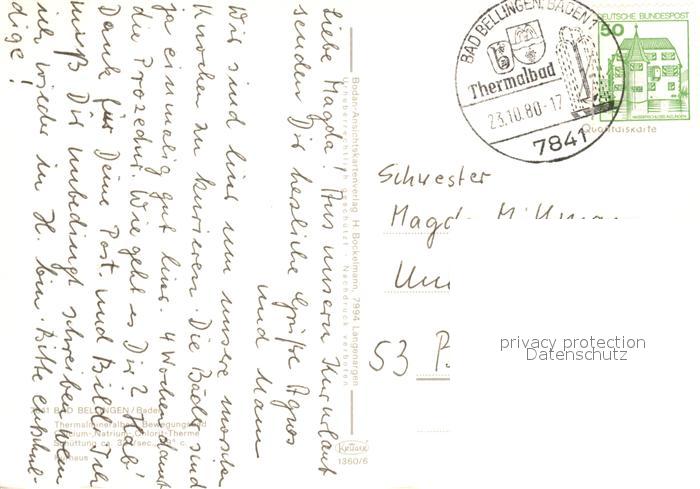 Liebe Magda! Aus unserm Kururlaub
senden Dir herzliche Grüße Agnes
und Mann
Wir sind hier um unsere morschen
Knochen zu kurieren. Die Bäder sind
ja einmalig gut hier. 4 Wochen dauert
die Prozedur. Wie geht es Dir? Hab'
Dank für Deine Post und Bild. Ich
muß Dir unbedingt schreiben wenn
ich wieder in H. bin. Bitte entschul-
dige!
Bodan-Ansichtskartenverlag H. Bockelmann, 7994 Langenargen
Urheberrechtlich geschützt - Nachdruck verboten
7841 BAD BELLINGEN/Baden
Thermalmineralbad, Bewegungsbad
Calcium-Natrium-Chlorit-Therme
Schüttung ca. l/sec., ° c.
Kurhaus
KRÜGER
1360/6
BAD BELLINGEN, BADEN
Thermalbad
23.10.80-17
7841
DEUTSCHE BUNDESPOST
50
WASSERSCHLOSS INZLINGEN
Qualitätskarte
Schwester
Magda
53
privacy protection
Datenschutz